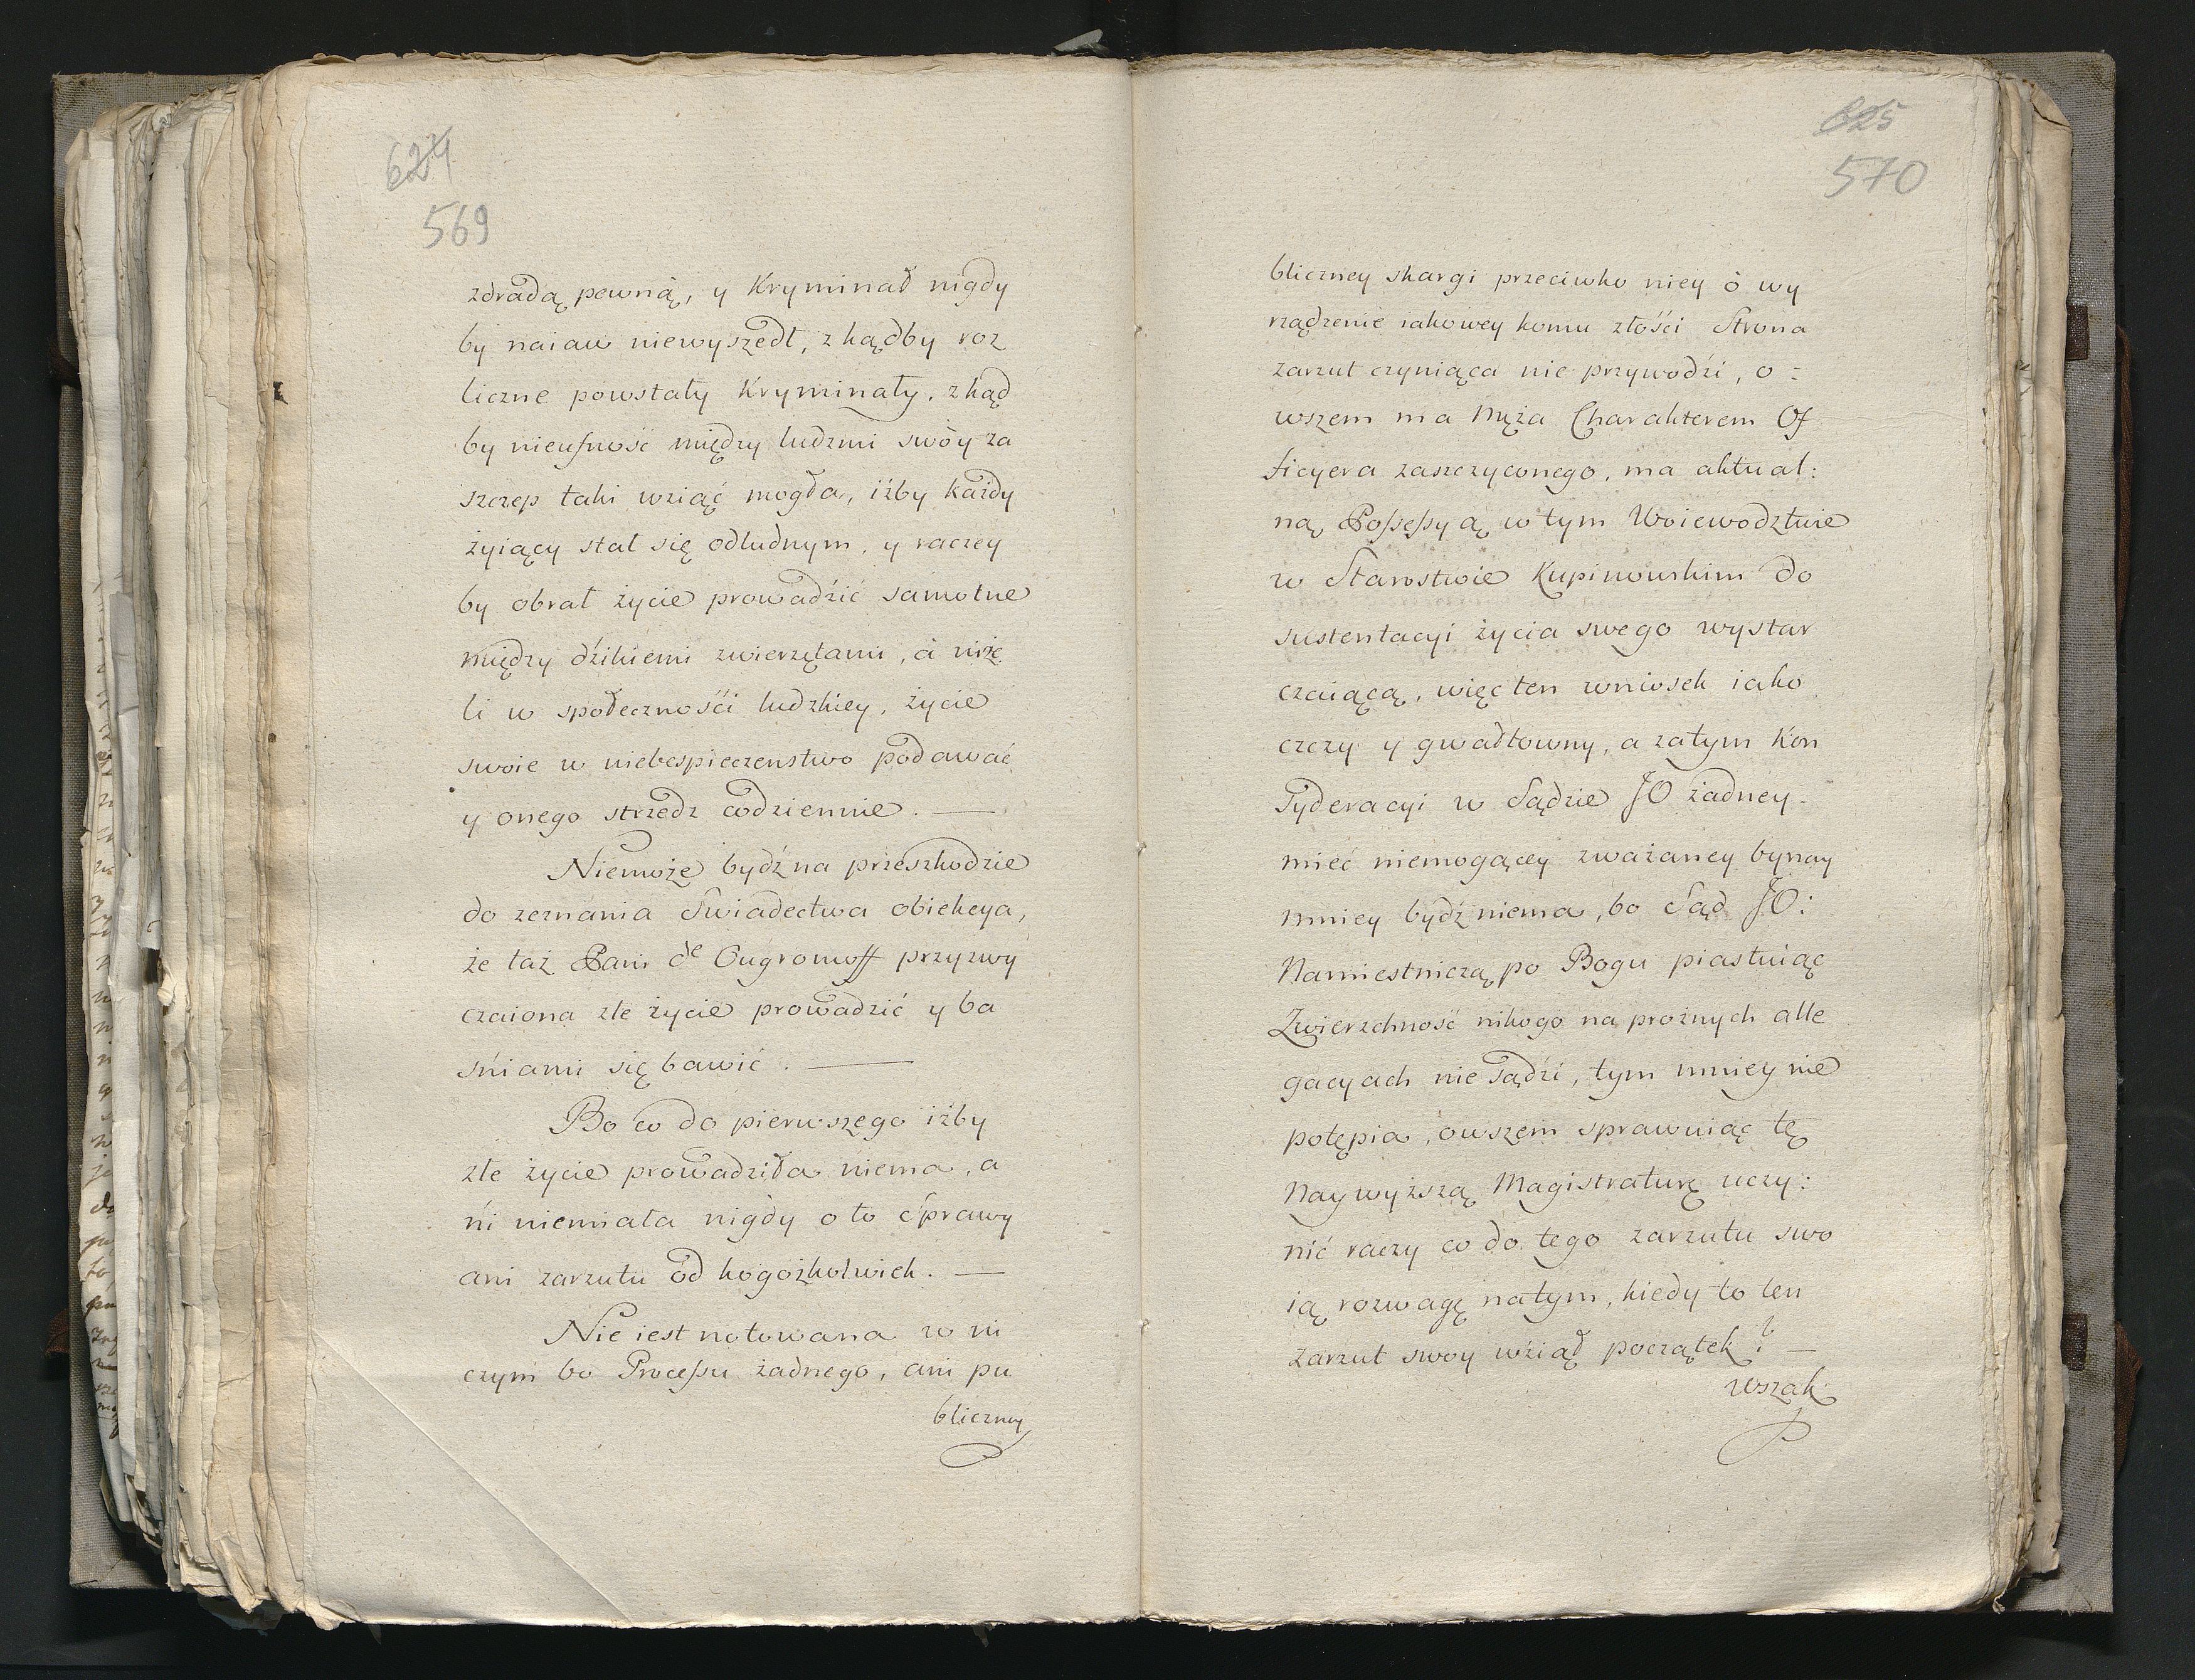 624
569
zdradą pewną, y Kryminał nigdy
by naiaw niewyszedł, zkądby roz
liczne powstały Kryminały, zkąd
by nieufność między ludzmi swòy za
szczep taki wziąć mogła, iżby każdy
żyiący stał się odludnym, y raczey
by obrał życie prowadźić samotne
między dźikiemi zwierzętami, à niże
li w społecznośći ludzkiey, życie
swoie w niebespieczenstwo podawać
y onego strzedz codziennie. —
Niemoże bydź na przeszkodzie
do zeznania Swiadectwa obiekcya,
że taż Pani de Ougromoff przyzwy
czaiona złe życie prowadzić y ba
śniami się bawić. —
Bo co do pierwszego iżby
złe życie prowadziła niema, a
ńi niemiała nigdy o to Sprawy
ani zarzutu od kogożkolwiek. —
Nie iest notowana w ni
czym bo Processu żadnego, ani pu
bliczney
625
570
bliczney skargi przeciwko niey ò wy
rządzenie iakowey komu złośći Strona
zarzut czyniąca nie przywodźi, o=
wszem ma Męża Charakterem Of
ficyera zaszczyconego, ma aktual:
ną Possessyą w tym Woiewodztwie
w Starostwie Kupinowskim do
sustentacyi życia swego wystar
czaiącą, więc ten wniosek iako
czczy y gwałtowny, a zatym Kon
syderacyi w Sądzie JO żadney
mieć niemogącey zważaney bynay
mniey bydź niema, bo Sąd JO:
Namiestniczą po Bogu piastuiąc
Zwierzchność nikogo na prożnych alle
gacyach nie sądźi, tym mniey nie
potępia, owszem sprawuiąc tę
Naywyższą Magistraturę uczy:
nić raczy co do tego zarzutu swo
ią rozwagę natym, kiedy to ten
zarzut swoy wźiął początek? —
Wszak